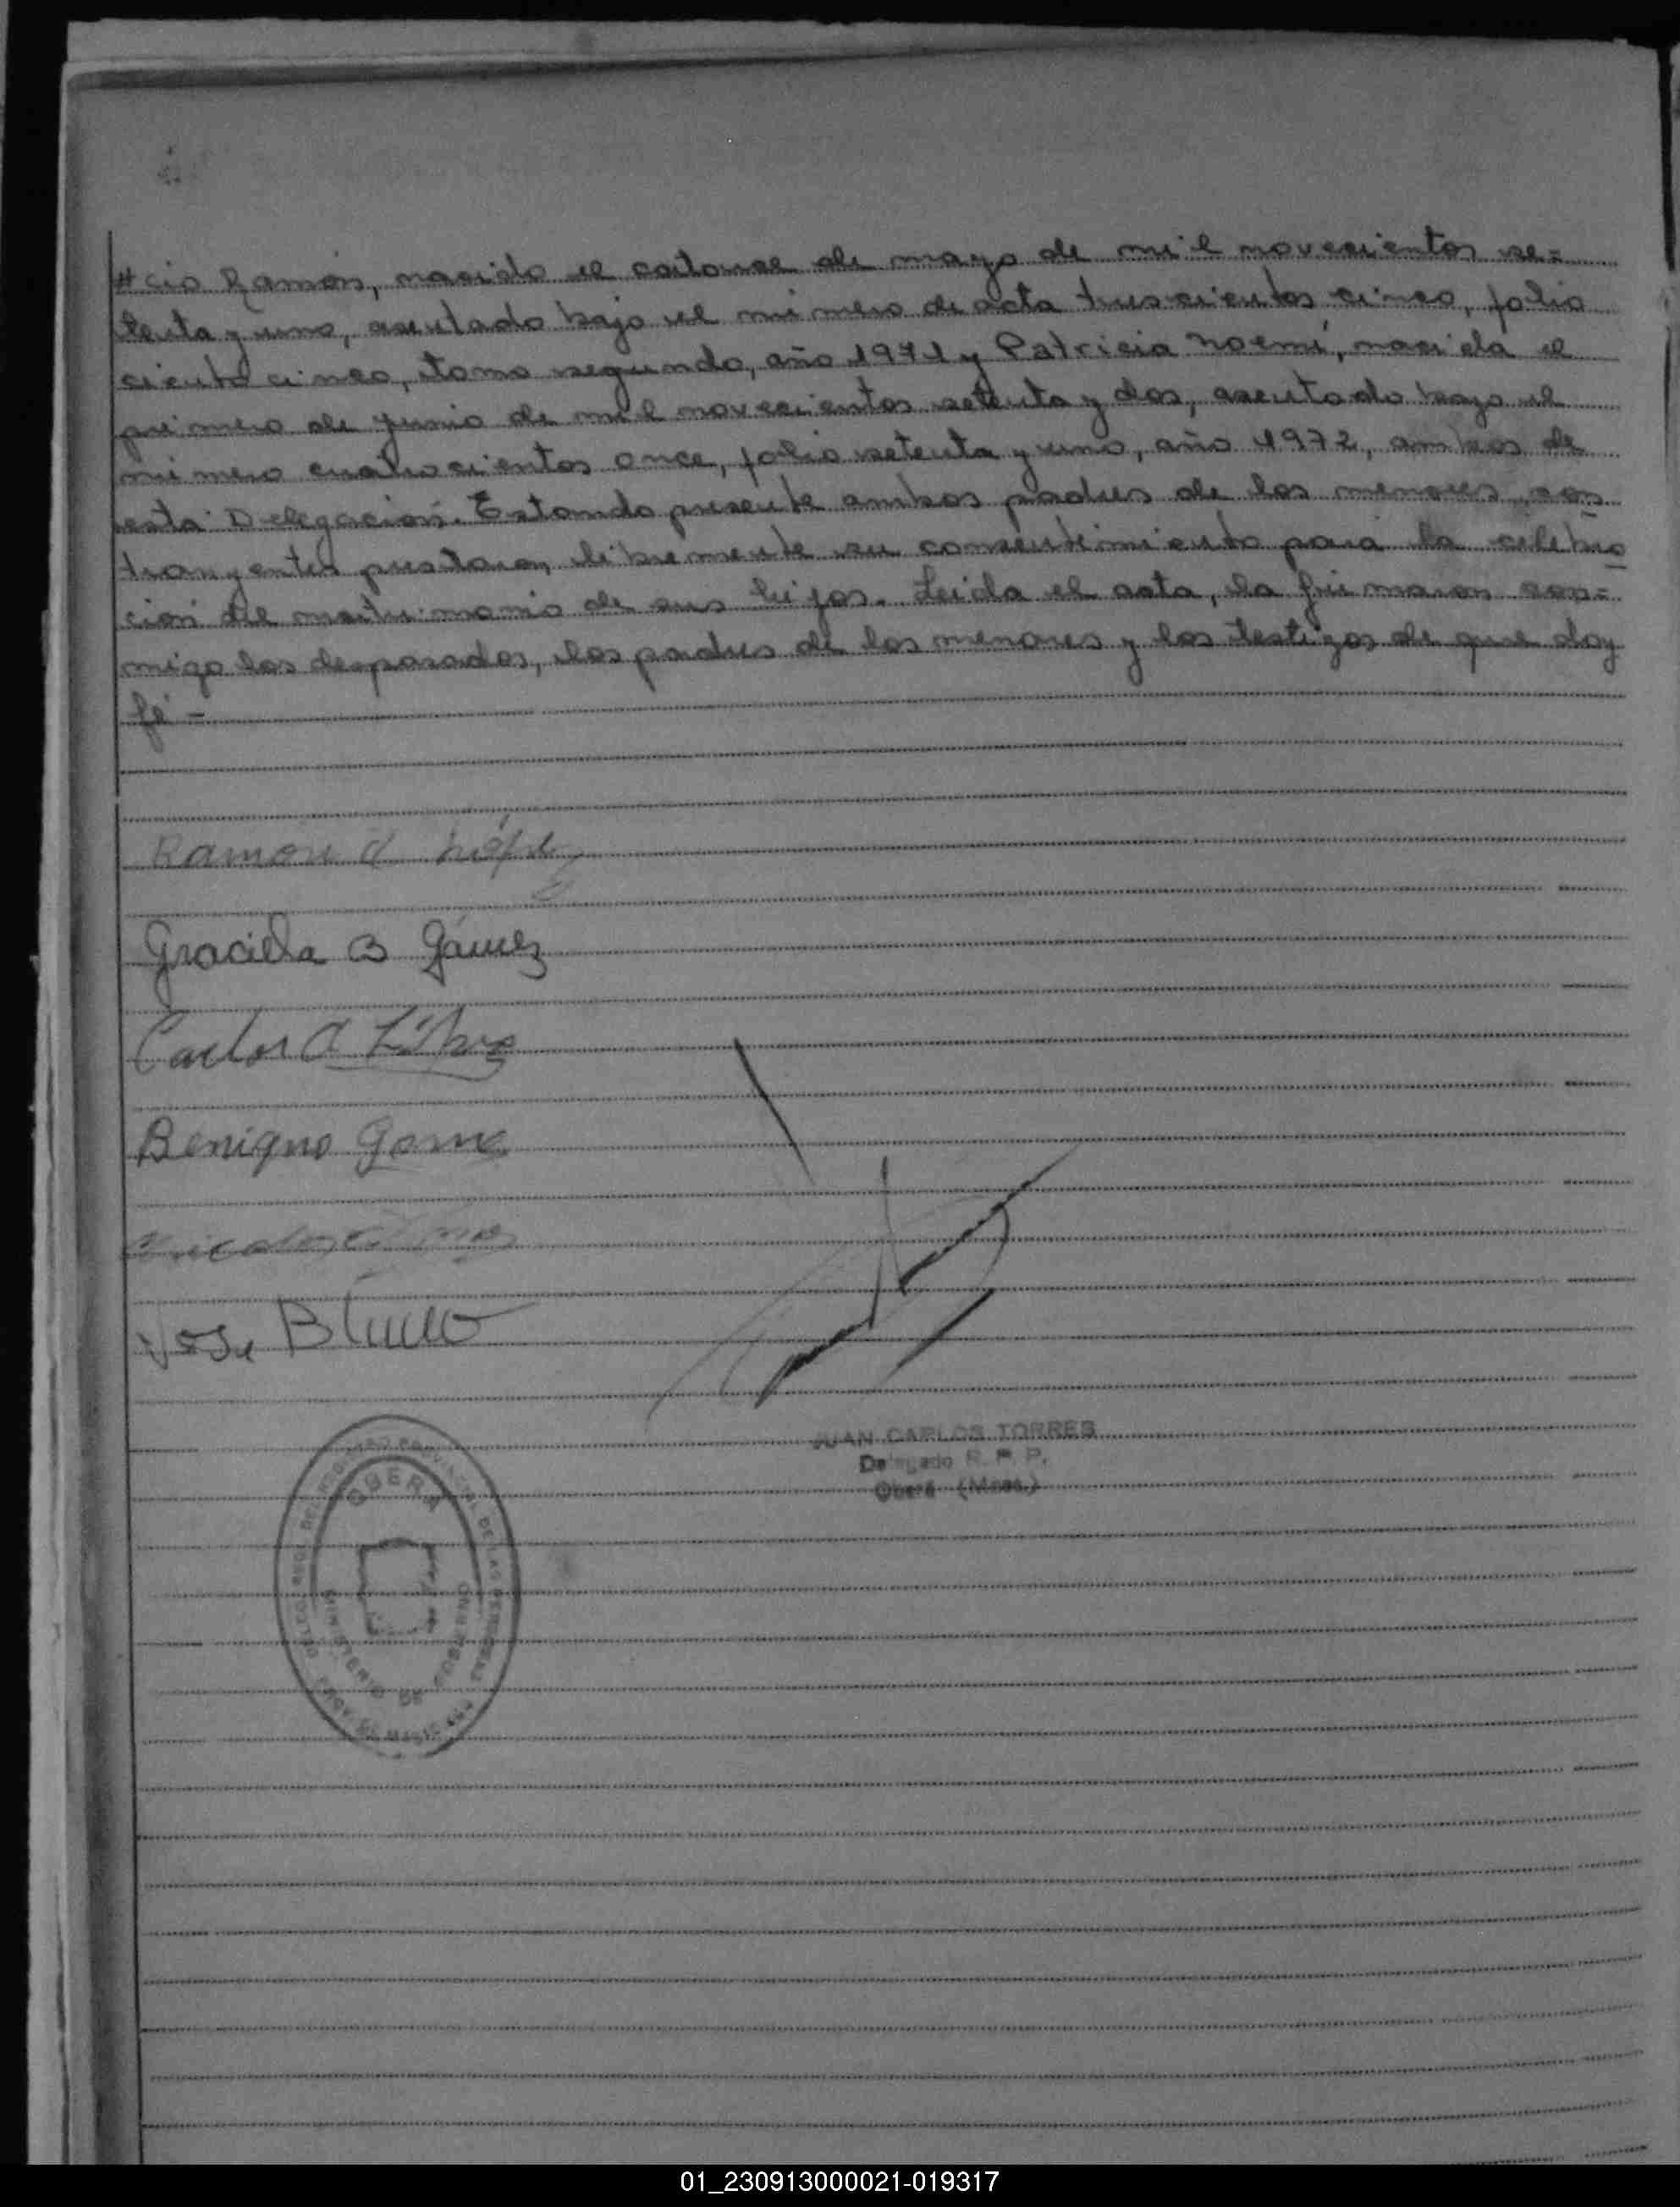 #cio Ramón, nacido el catorce de mayo de mil novecientos se=
tenta y uno, asentado bajo el número de acta trescientos cinco, folio
ciento cinco, tomo segundo, año 1971 y Patricia Noemí, nacida el
primero de junio de mil novecientos setenta y dos, asentado bajo el
número cuatrocientos once, folio setenta y uno, año 1972, ambos de
esta Delegación. Estando presente ambos padres de los menores con
trayentes prestaron libremente su consentimiento para la celebra
ción del matrimonio de sus hijos. Leida el acta, la firmaron con=
migo los desposados, los padres de los menores y los testigos de que doy
fé -
Ramon
Graciela B Gámez
Carlos A
Benigno Gome
Jose
JUAN CARLOS TORRES
Delegado R. P. P.
Oberá (Mnes.)
OBERA
MINISTERIO DE GOBIERNO
01_230913000021-019317